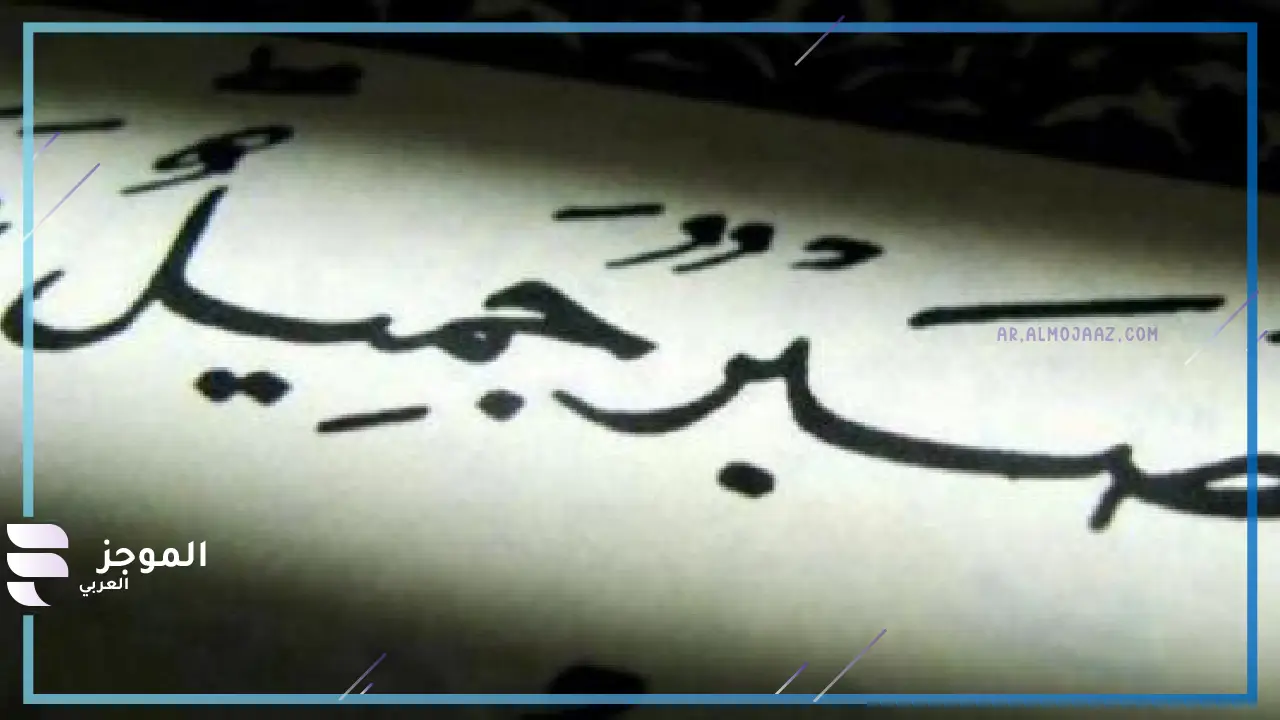 صَبْرٌ جَمِيلٌ
AR.ALMOJAAZ.COM
الموجز
العربي